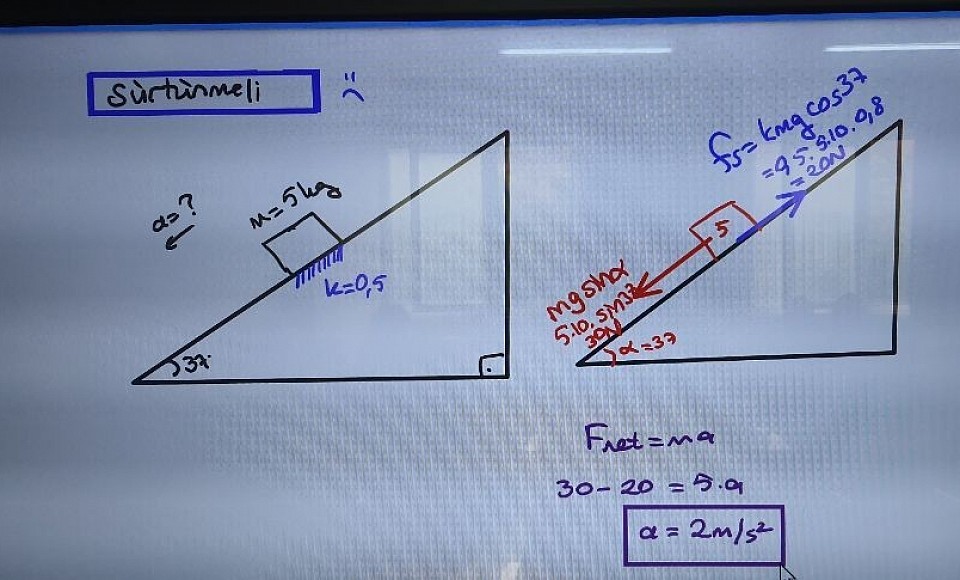 Sürtünmeli
a=?
m=5kg
k=0,5
37°
fs=kmgcos37
=0,5.5.10.0,8
=20N
5
mgsinα
5.10.sin37
30N
α=37
Fnet=ma
30-20=5.a
a=2m/s²